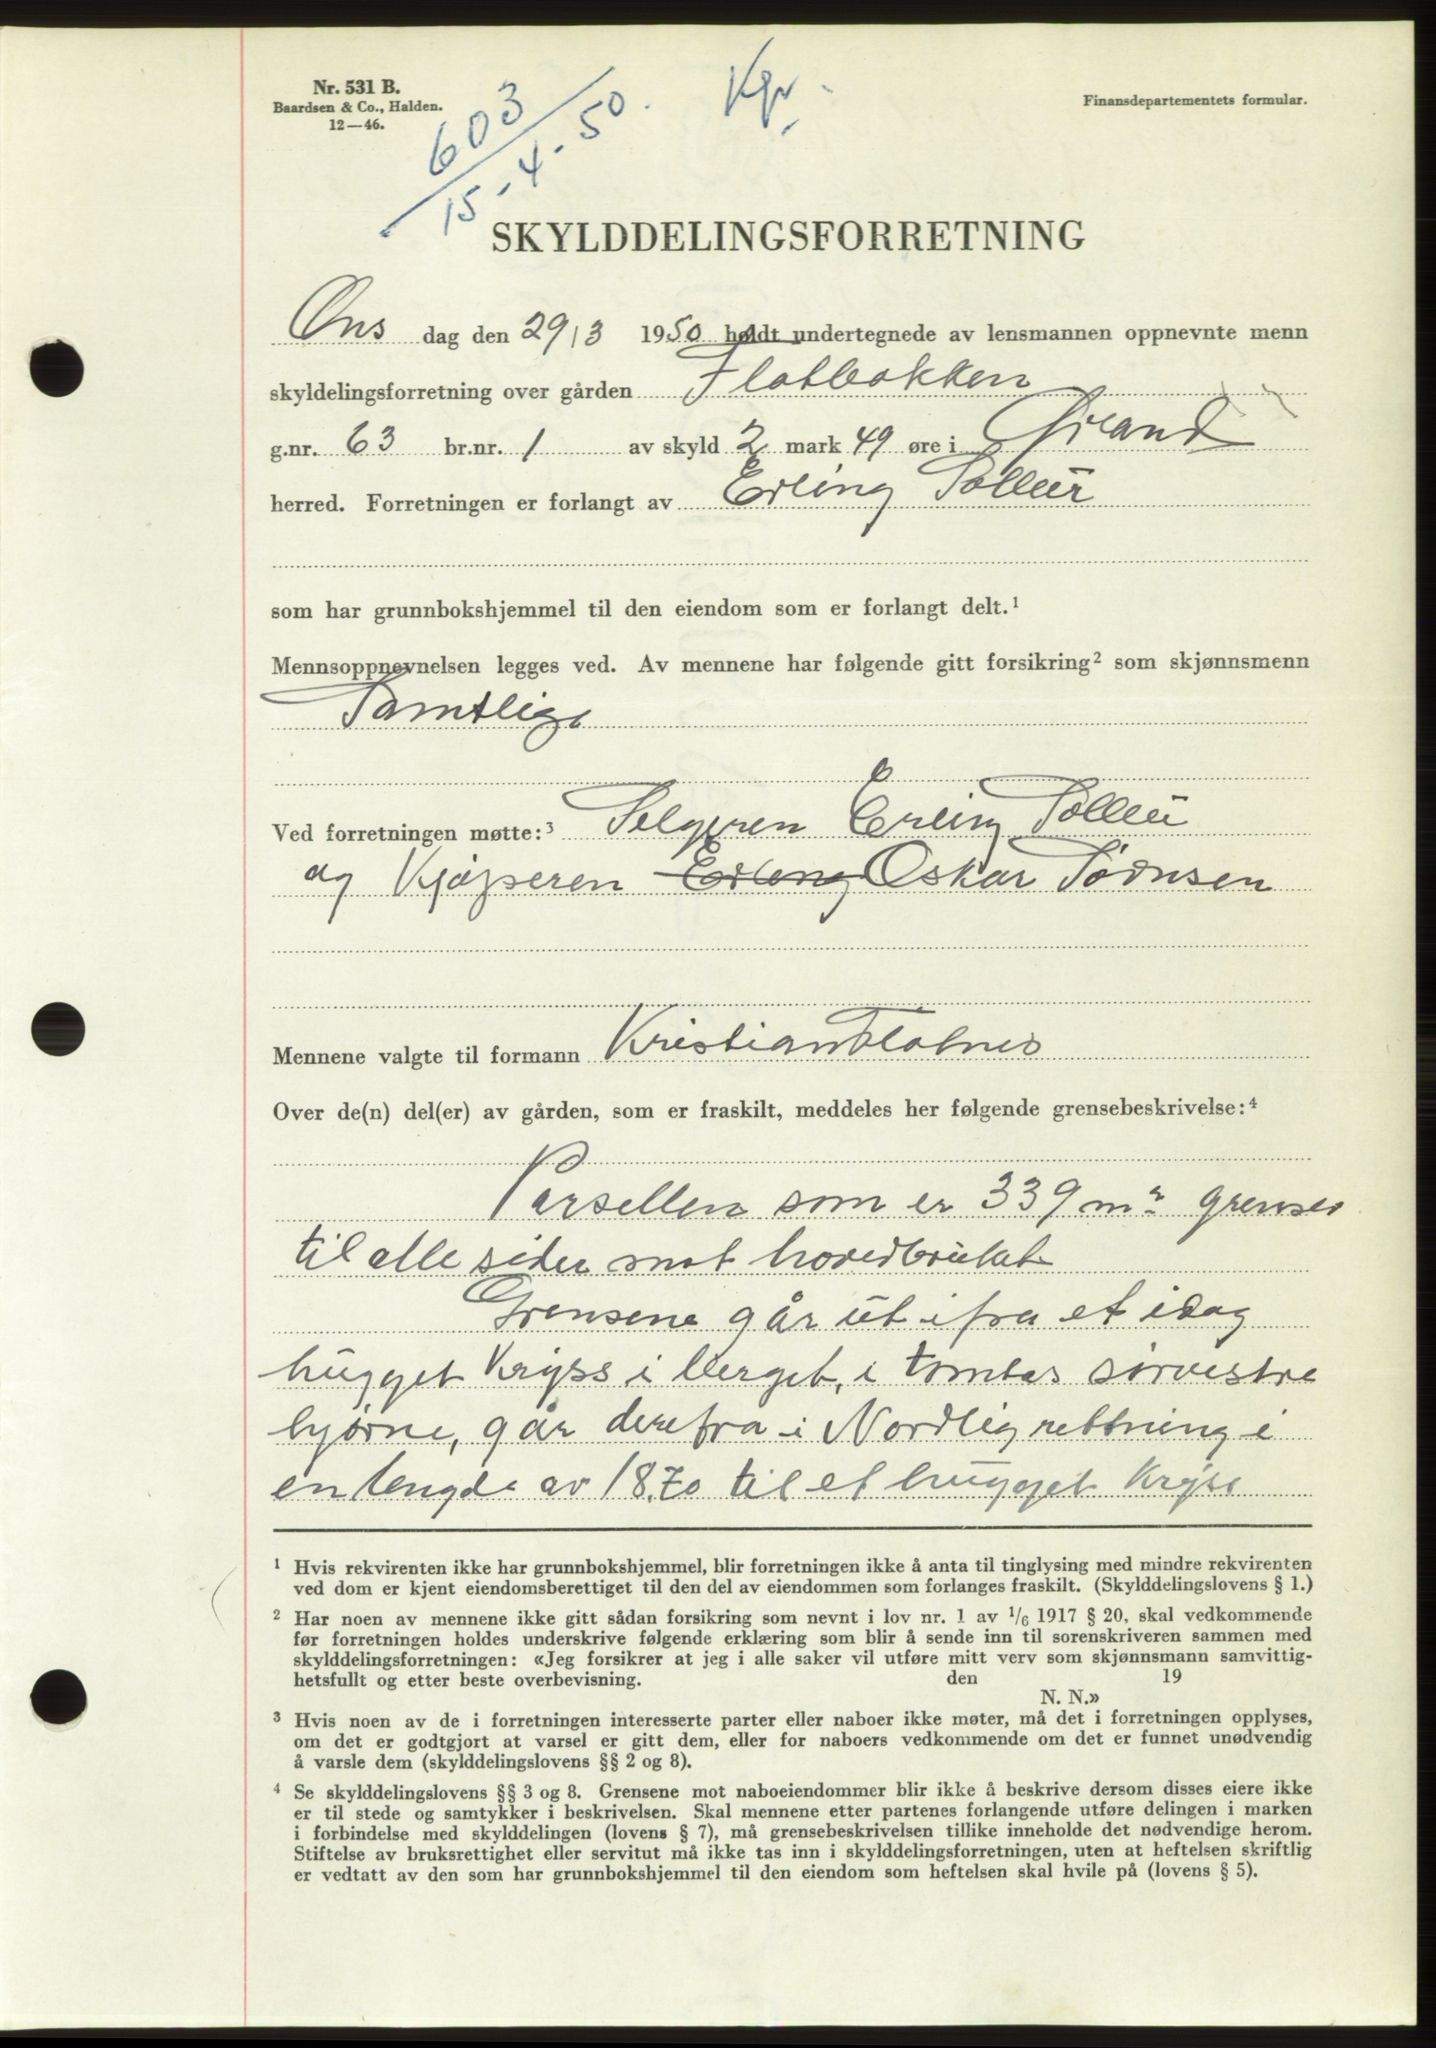 Nr. 531 B.
Baardsen & Co., Halden.
12—46.
603
15-4-50.
Kgr.
Finansdepartementets formular.
SKYLDDELINGSFORRETNING
Ons dag den 29/3 1950 holdt undertegnede av lensmannen oppnevnte menn
skyldelingsforretning over gården Flatbakken
g.nr. 63 br.nr. 1 av skyld 2 mark 49 øre i Strand
herred. Forretningen er forlangt av Erling
som har grunnbokshjemmel til den eiendom som er forlangt delt.¹
Mennsoppnevnelsen legges ved. Av mennene har følgende gitt forsikring² som skjønnsmenn
Samtlige
Ved forretningen møtte:³ Selgeren Erling
og Kjøperen Erling Oskar Tønsen
Mennene valgte til formann Kristian Flatnes
Over de(n) del(er) av gården, som er fraskilt, meddeles her følgende grensebeskrivelse:⁴
Parsellen som er 339 m² grenser
til alle sider mot hovedbruket
Grensene går ut ifra et idag
hugget kryss i berget, i tomtas sørvestre
hjørne, går derefra i Nordlig rettning i
en lengde av 18.70 til et hugget kryss
¹ Hvis rekvirenten ikke har grunnbokshjemmel, blir forretningen ikke å anta til tinglysing med mindre rekvirenten
ved dom er kjent eiendomsberettiget til den del av eiendommen som forlanges fraskilt. (Skylddelingslovens § 1.)
² Har noen av mennene ikke gitt sådan forsikring som nevnt i lov nr. 1 av 1/6 1917 § 20, skal vedkommende
før forretningen holdes underskrive følgende erklæring som blir å sende inn til sorenskriveren sammen med
skylddelingsforretningen: «Jeg forsikrer at jeg i alle saker vil utføre mitt verv som skjønnsmann samvittig-
hetsfullt og etter beste overbevisning. den 19
N. N.»
³ Hvis noen av de i forretningen interesserte parter eller naboer ikke møter, må det i forretningen opplyses,
om det er godtgjort at varsel er gitt dem, eller for naboers vedkommende om det er funnet unødvendig
å varsle dem (skylddelingslovens §§ 2 og 8).
⁴ Se skylddelingslovens §§ 3 og 8. Grensene mot naboeiendommer blir ikke å beskrive dersom disses eiere ikke
er til stede og samtykker i beskrivelsen. Skal mennene etter partenes forlangende utføre delingen i marken
i forbindelse med skylddelingen (lovens § 7), må grensebeskrivelsen tillike inneholde det nødvendige herom.
Stiftelse av bruksrettighet eller servitut må ikke tas inn i skylddelingsforretningen, uten at heftelsen skriftlig
er vedtatt av den som har grunnbokshjemmel til den eiendom som heftelsen skal hvile på (lovens § 5).